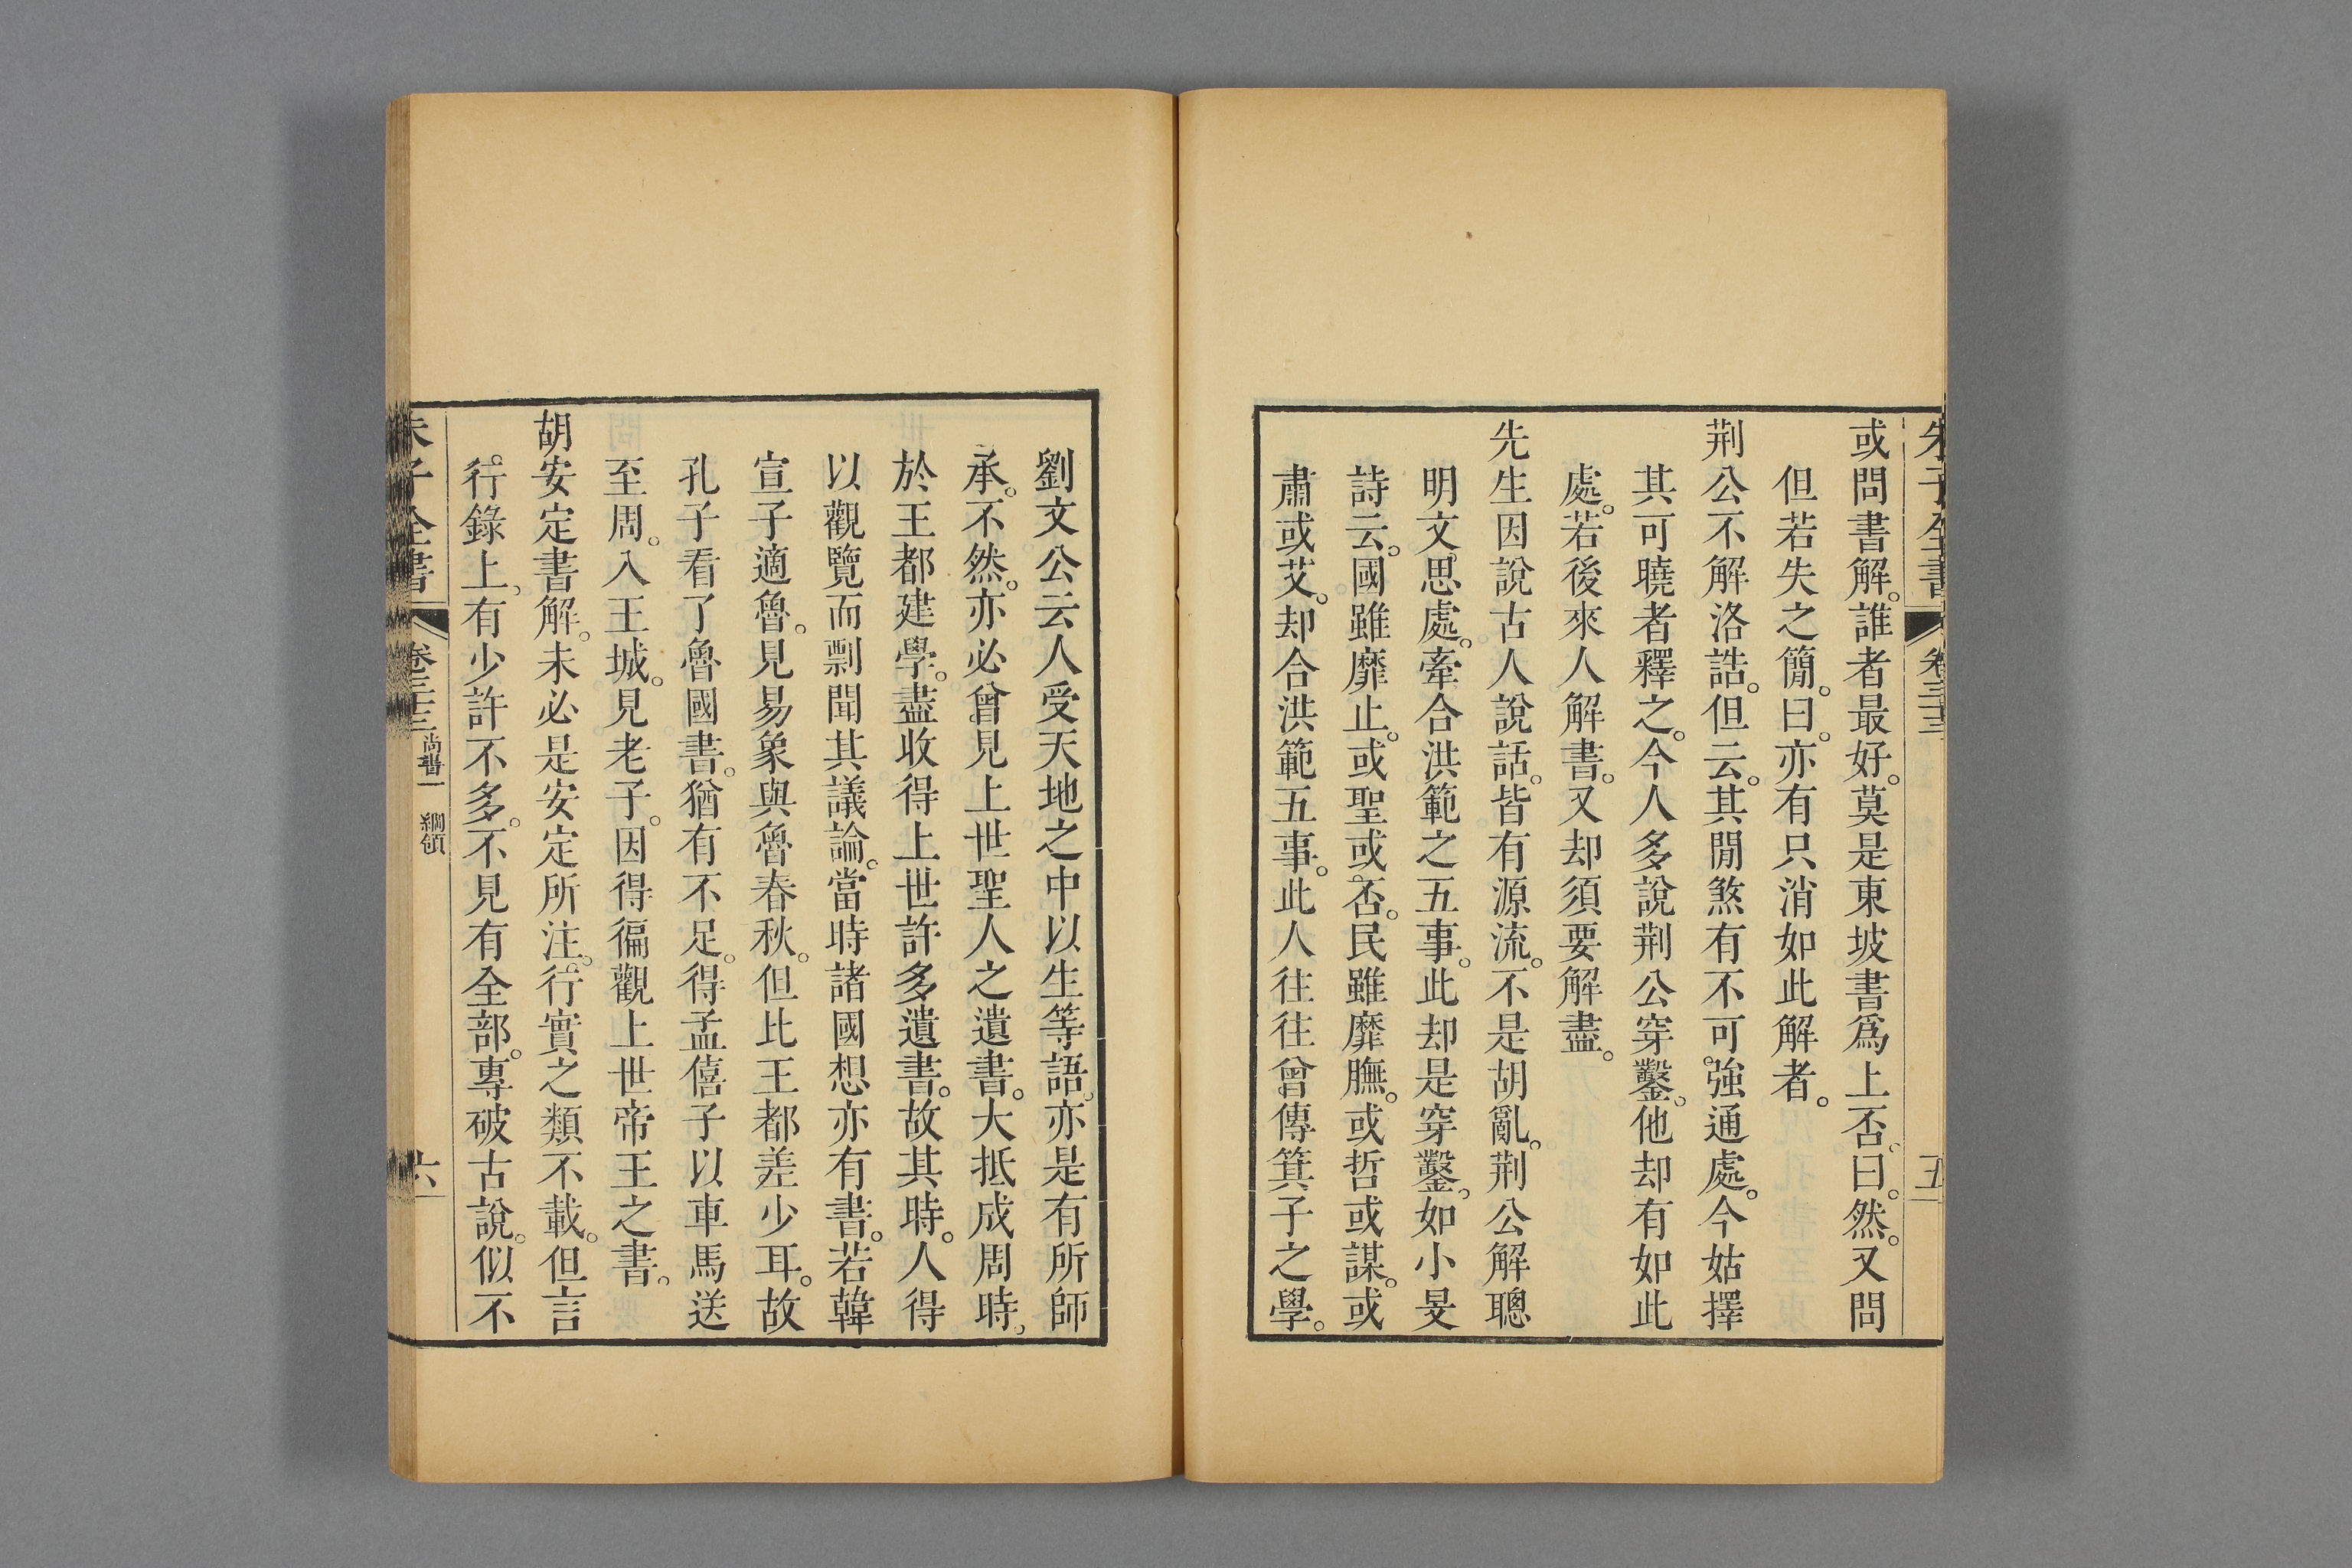 朱子全書 卷三十三 五
或問書解。誰者最好。莫是東坡書爲上否。曰。然。又問
但若失之簡。曰。亦有只消如此解者。
荆公不解洛誥。但云。其閒煞有不可強通處。今姑擇
其可曉者釋之。今人多說荆公穿鑿。他却有如此
處。若後來人解書。又却須要解盡。
先生因說古人說話。皆有源流。不是胡亂。荆公解聰
明文思處。牽合洪範之五事。此却是穿鑿。如小旻
詩云。國雖靡止。或聖或否。民雖靡膴。或哲或謀。或
肅或艾。却合洪範五事。此人往往曾傳箕子之學。
劉文公云人受天地之中以生等語。亦是有所師
承。不然。亦必曾見上世聖人之遺書。大抵成周時。
於王都建學。盡收得上世許多遺書。故其時。人得
以觀覽而剽聞其議論。當時諸國想亦有書。若韓
宣子適魯。見易象與魯春秋。但比王都差少耳。故
孔子看了魯國書。猶有不足。得孟僖子以車馬送
至周。入王城。見老子。因得徧觀上世帝王之書。
胡安定書解。未必是安定所注。行實之類不載。但言
行錄上。有少許不多。不見有全部。專破古說。似不
朱子全書 卷三十三 尚書一 綱領 六